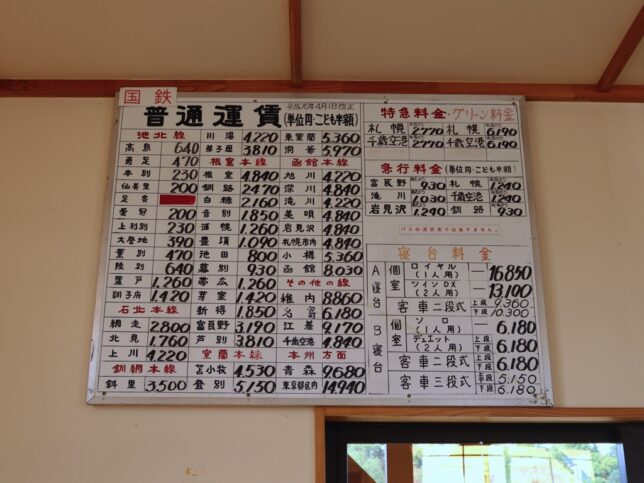 国鉄
普通運賃 平成元年4月1日改正 (単位円・こども半額)
池北線
高島 640
勇足 470
本別 230
仙美里 200
足寄
愛冠 200
上別別 230
大誉地 390
薫別 470
陸別 640
置戸 1,260
訓子府 1,420
石北本線
網走 2,800
北見 1,760
上川 4,220
釧網本線
斜里 3,500
川湯 4,220
弟子屈 3,810
根室本線
根室 4,840
釧路 2,470
白糠 2,160
音別 1,850
浦幌 1,260
豊頃 1,090
池田 800
幕別 930
帯広 1,260
芽室 1,420
新得 1,850
富良野 3,190
芦別 3,810
室蘭本線
苫小牧 4,530
登別 5,150
東室蘭 5,360
洞爺 5,970
函館本線
旭川 4,220
深川 4,840
滝川 4,220
美唄 4,840
岩見沢 4,840
札幌市内 4,840
小樽 5,360
函館 8,030
その他の線
稚内 8860
名寄 6,180
江差 9,170
千歳空港 4,840
本州方面
青森 9,680
東京都区内 14,940
特急料金・グリーン料金
札幌 2,770 札幌 6,190
千歳空港 2,770 千歳空港 6,190
急行料金 (単位円・こども半額)
富良野 930 札幌 1,240
滝川 1,030 千歳空港 1,240
岩見沢 1,240 釧路 930
バスの運賃表ではありません。
寝台料金
A寝台
個室 ロイヤル (1人用) 16,850
ツインDX (2人用) 13,100
客車二段式 上段 9,360
下段 10,300
B寝台
個室 ソロ (1人用) 6,180
デュエット (2人用) 上段 下段 6,180
客車二段式 上段 下段 6,180
客車三段式 上段 中段 5,150
下段 6,180